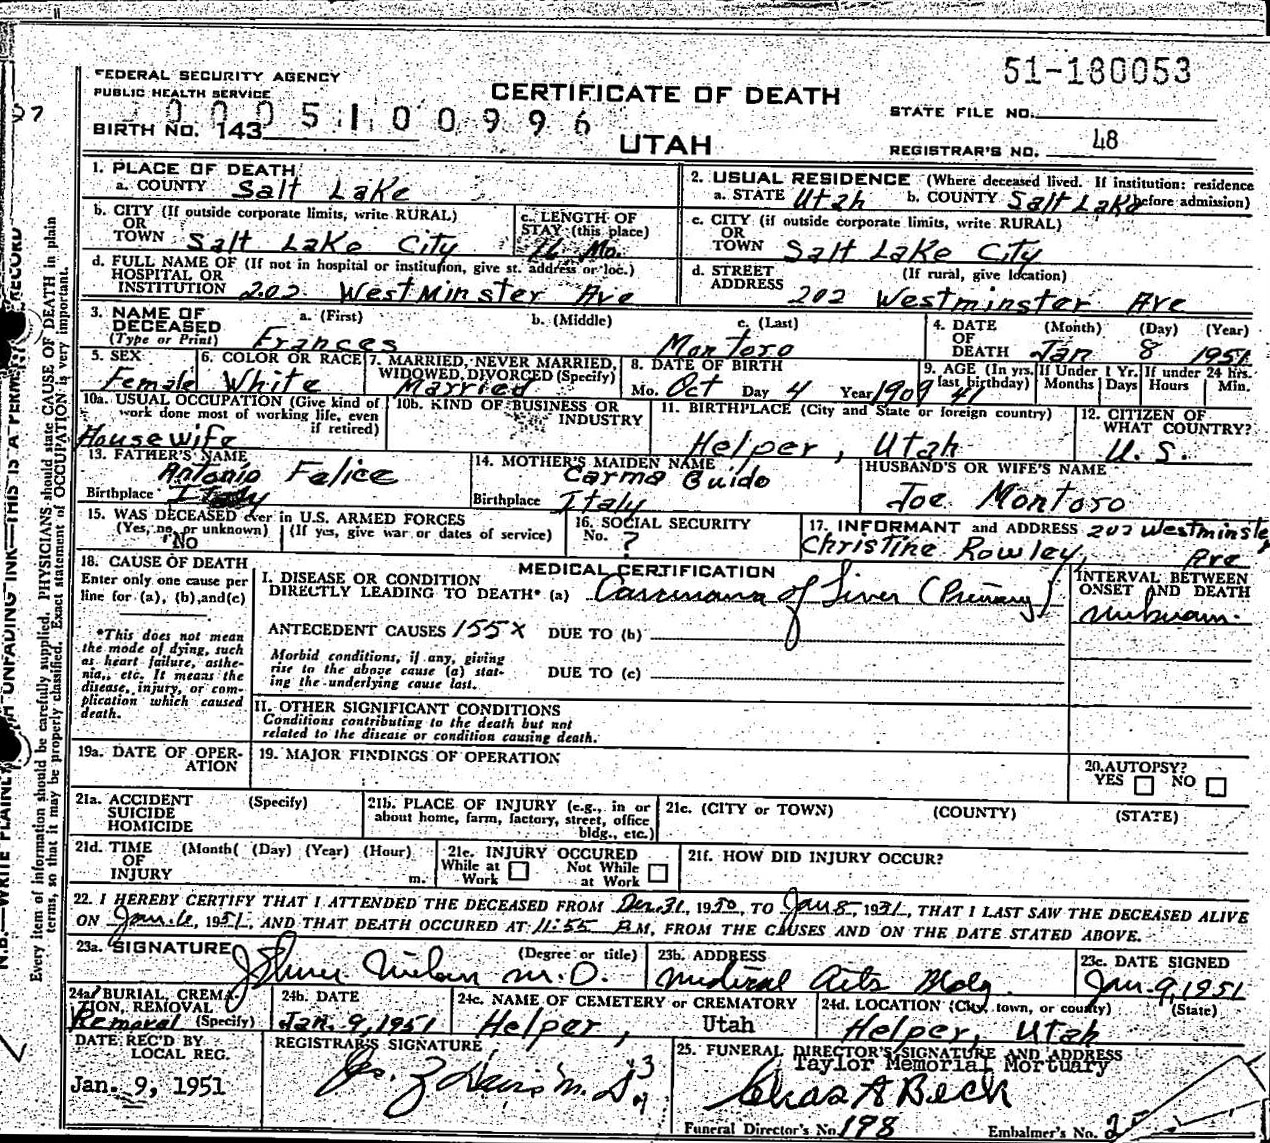 51-180053
FEDERAL SECURITY AGENCY
PUBLIC HEALTH SERVICE
CERTIFICATE OF DEATH
STATE FILE NO.
27
0005100996
BIRTH NO. 143
UTAH
REGISTRAR'S NO. 48
1. PLACE OF DEATH
a. COUNTY Salt Lake
2. USUAL RESIDENCE (Where deceased lived. If institution: residence before admission)
a. STATE Utah b. COUNTY Salt Lake
b. CITY (If outside corporate limits, write RURAL)
OR
TOWN Salt Lake City
c. LENGTH OF
STAY (this place)
Mo.
c. CITY (if outside corporate limits, write RURAL)
OR
TOWN Salt Lake City
d. FULL NAME OF (If not in hospital or institution, give st. address or loc.)
HOSPITAL OR
INSTITUTION 202 WestMinster Ave
d. STREET (If rural, give location)
ADDRESS 202 Westminster Ave
3. NAME OF
DECEASED
(Type or Print)
a. (First) b. (Middle) c. (Last)
Frances Montoro
4. DATE (Month) (Day) (Year)
OF
DEATH Jan 8 1951
5. SEX
Female
6. COLOR OR RACE
White
7. MARRIED, NEVER MARRIED,
WIDOWED, DIVORCED (Specify)
Married
8. DATE OF BIRTH
Mo. Oct Day 4 Year 1909
9. AGE (In yrs. last birthday) 41
If Under 1 Yr. Months Days
If under 24 hrs. Hours Min.
10a. USUAL OCCUPATION (Give kind of
work done most of working life, even
if retired)
Housewife
10b. KIND OF BUSINESS OR
INDUSTRY
11. BIRTHPLACE (City and State or foreign country)
Helper, Utah
12. CITIZEN OF
WHAT COUNTRY?
U. S.
13. FATHER'S NAME
Antonio Felice
Birthplace Italy
14. MOTHER'S MAIDEN NAME
Carma Guido
Birthplace Italy
HUSBAND'S OR WIFE'S NAME
Joe Montoro
15. WAS DECEASED ever in U.S. ARMED FORCES
(Yes, no, or unknown) (If yes, give war or dates of service)
No
16. SOCIAL SECURITY
No. ?
17. INFORMANT and ADDRESS 202 Westminster
Christine Rowley, Ave
18. CAUSE OF DEATH
Enter only one cause per
line for (a), (b), and (c)
*This does not mean
the mode of dying, such
as heart failure, asthe-
nia, etc. It means the
disease, injury, or com-
plication which caused
death.
MEDICAL CERTIFICATION
I. DISEASE OR CONDITION
DIRECTLY LEADING TO DEATH* (a) Carcinoma of Liver (Primary)
INTERVAL BETWEEN
ONSET AND DEATH
unknown.
ANTECEDENT CAUSES 155X DUE TO (b)
Morbid conditions, if any, giving
rise to the above cause (a) stat-
ing the underlying cause last.
DUE TO (c)
II. OTHER SIGNIFICANT CONDITIONS
Conditions contributing to the death but not
related to the disease or condition causing death.
19a. DATE OF OPER-
ATION
19. MAJOR FINDINGS OF OPERATION
20. AUTOPSY?
YES NO
21a. ACCIDENT (Specify)
SUICIDE
HOMICIDE
21b. PLACE OF INJURY (e.g., in or
about home, farm, factory, street, office
bldg., etc.)
21c. (CITY or TOWN) (COUNTY) (STATE)
21d. TIME (Month( (Day) (Year) (Hour)
OF
INJURY m.
21e. INJURY OCCURED
While at Work Not While at Work
21f. HOW DID INJURY OCCUR?
22. I HEREBY CERTIFY THAT I ATTENDED THE DECEASED FROM Dec. 31, 1950, TO Jan 8, 1951, THAT I LAST SAW THE DECEASED ALIVE
ON Jan. 6, 1951, AND THAT DEATH OCCURED AT 11:55 P.M, FROM THE CAUSES AND ON THE DATE STATED ABOVE.
23a. SIGNATURE (Degree or title)
M.D.
23b. ADDRESS
Medical Arts Bldg.
23c. DATE SIGNED
Jan. 9, 1951
24a. BURIAL, CREMA-
TION, REMOVAL
Removal (Specify)
24b. DATE
Jan. 9, 1951
24c. NAME OF CEMETERY or CREMATORY
Helper, Utah
24d. LOCATION (City, town, or county) (State)
Helper, Utah
DATE REC'D BY
LOCAL REG.
Jan. 9, 1951
REGISTRAR'S SIGNATURE
25. FUNERAL DIRECTOR'S SIGNATURE AND ADDRESS
Taylor Memorial Mortuary
Chas A Beck
Funeral Director's No. 198 Embalmer's No.
N.B.—WRITE PLAINLY UNFADING INK—THIS IS A RECORD
Every item of information should be carefully supplied. PHYSICIANS should state CAUSE OF DEATH in plain
terms, so that it may be properly classified. Exact statement of OCCUPATION is very important.